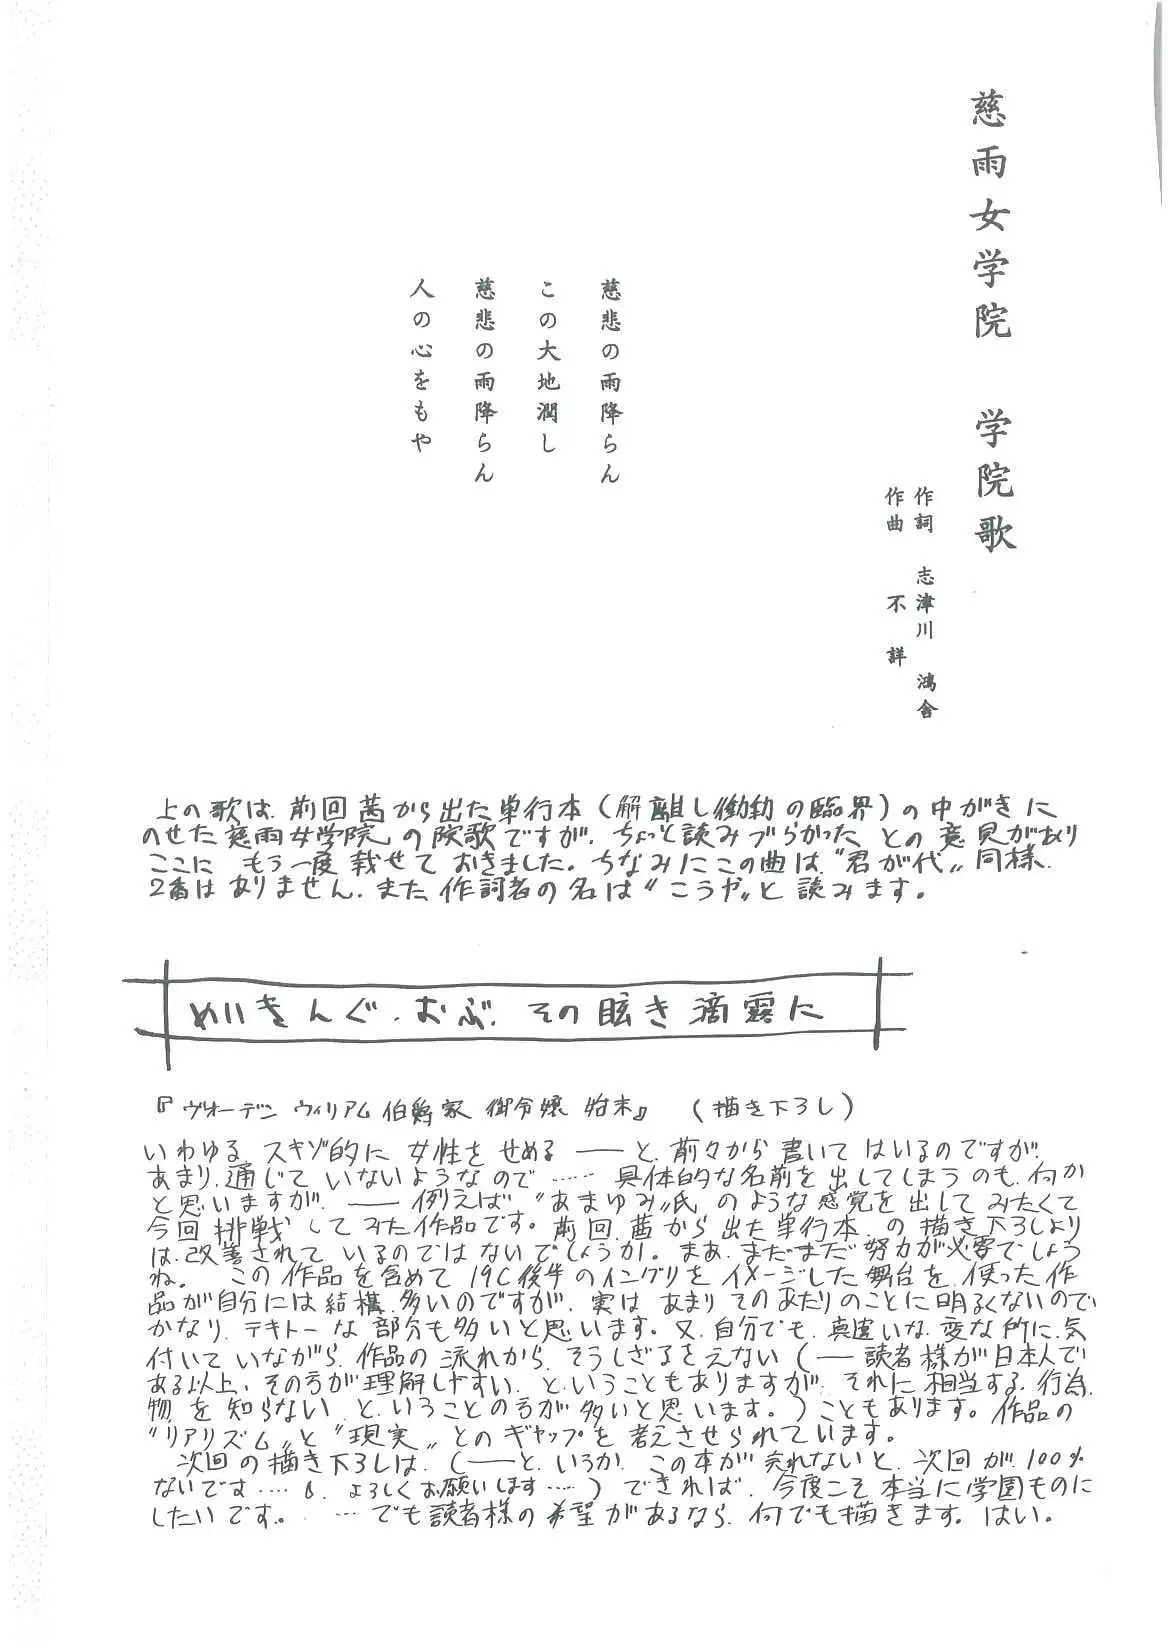 慈雨女学院 学院歌
作詞 志津川 鴻舎
作曲 不詳
慈悲の雨降らん
この大地潤し
慈悲の雨降らん
人の心をもや
上の歌は、前回茜から出た単行本(解離し働動の臨界)の中がきに
のせた慈雨女学院の院歌ですが、ちょっと読みづらかったとの意見があり
ここにもう一度載せておきました。ちなみにこの曲は“君が代”同様、
2番はありません、また作詞者の名は“こうや”と読みます。
めいきんぐ・おぶ・その眩き滴露に
『ヴォーデン ウィリアム伯爵家 御令嬢 始末』 (描き下ろし)
いわゆるスキゾ的に女性をせめる──と、前々から書いてはいるのですが、
あまり通じていないようなので……具体的な名前を出してしまうのも、何か
と思いますが、──例えば“あまゆみ”氏のような感覚を出してみたくて
今回挑戦してみた作品です。前回茜から出た単行本の描き下ろしより
は、改善されているのではないでしょうか。まあ、まだまだ努力が必要でしょう
ね。 この作品を含めて19C後半のイングリをイメージした舞台を使った作
品が自分には結構多いのですが、実はあまりそのあたりのことに明るくないので
かなり、テキトーな部分も多いと思います。又、自分でも、真違いな、変な所に気
付いていながら、作品の流れから、そうしざるをえない(──読者様が日本人で
ある以上、その方が理解しやすい、ということもありますが、それに相当する、行為、
物を知らない、ということの方が多いと思います。)こともあります。作品の
“リアリズム”と“現実”とのギャップを考えさせられています。
次回の描き下ろしは、(──と、いうか、この本が売れないと、次回が、100%
ないです…… よろしくお願いします……)できれば、今度こそ本当に学園ものに
したいです。 ……でも読者様の希望があるなら、何でも描きます。はい。